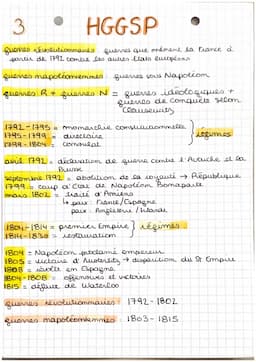 3 HGGSP
guerres révolutionnaires guerres que mènent la France à
partir de 1792 contre les autres états européens
guerres napoléoniennes guerres sous Napoléon
guerres R + guerres N = guerres idéologiques +
guerres de conquête selon
Clausewitz
1792 - 1795 = monarchie constitutionnelle
1795 - 1799 = directoire
régimes
1799 - 1804 = consulat
avril 1792 = déclaration de guerre contre l'Autriche et la
Prusse
septembre 1792 = abolition de la royauté → République
1799 = coup d'État de Napoléon Bonaparte
mars 1802 = traité d'Amiens
↳ paix : France/Espagne
paix : Angleterre / Irlande
1804 - 1814 = premier Empire
régimes
1814 - 1830 = restauration
1804 = Napoléon proclamé empereur
1805 = victoire d'Austerlitz → disparition du St Empire
1808 = révolte en Espagne
1804 - 1808 = offensives et victoires
1815 = défaite de Waterloo
guerres révolutionnaires 1792 - 1802
guerres napoléoniennes 1803 - 1815